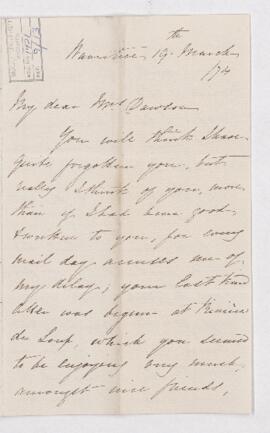 19th March
/74
My dear Mrs Dawson
You will think I have
quite forgotten you, but
really I think of you, more
than if I had been good,
& written to you, for every
mail day accuses me of
my delay; your last kind
letter was begun at Rivière
du Loup, which you seemed
to be enjoying very much,
amongst nice friends,